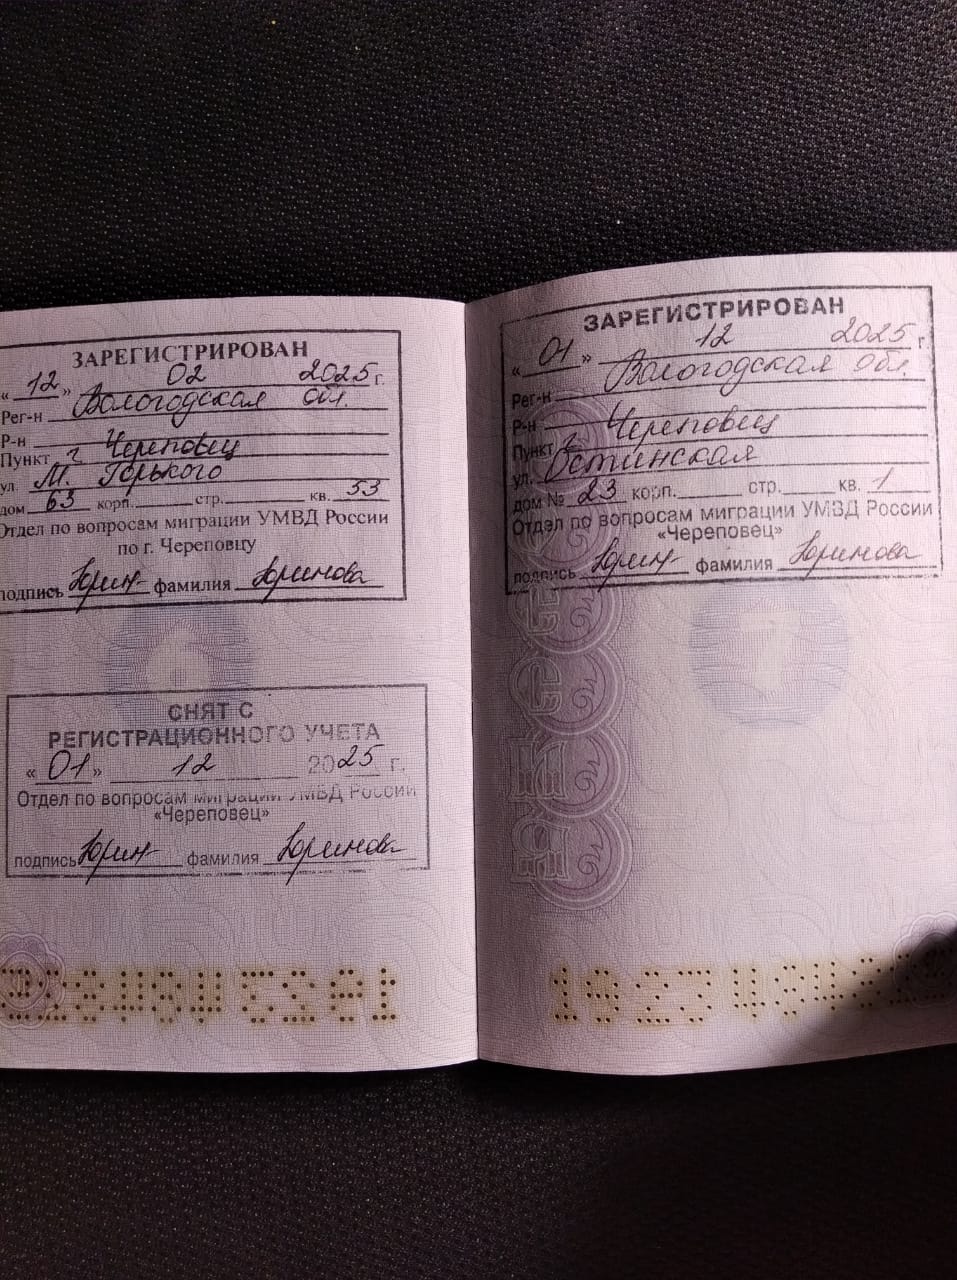 ЗАРЕГИСТРИРОВАН
« 12 » 02 2025 г.
Рег-н Вологодская обл.
Р-н
Пункт г Череповец
ул. М. Горького
дом 63 корп. стр. кв. 53
Отдел по вопросам миграции УМВД России
по г. Череповцу
подпись Юрин фамилия Юринова
СНЯТ С
РЕГИСТРАЦИОННОГО УЧЕТА
« 01 » 12 2025 г.
Отдел по вопросам миграции УМВД России
«Череповец»
подпись Юрин фамилия Юринова
ЗАРЕГИСТРИРОВАН
« 01 » 12 2025 г
Рег-н Вологодская обл.
Р-н
Пункт г Череповец
ул. Остинская
дом № 23 корп. стр. кв. 1
Отдел по вопросам миграции УМВД России
«Череповец»
подпись Юрин фамилия Юринова